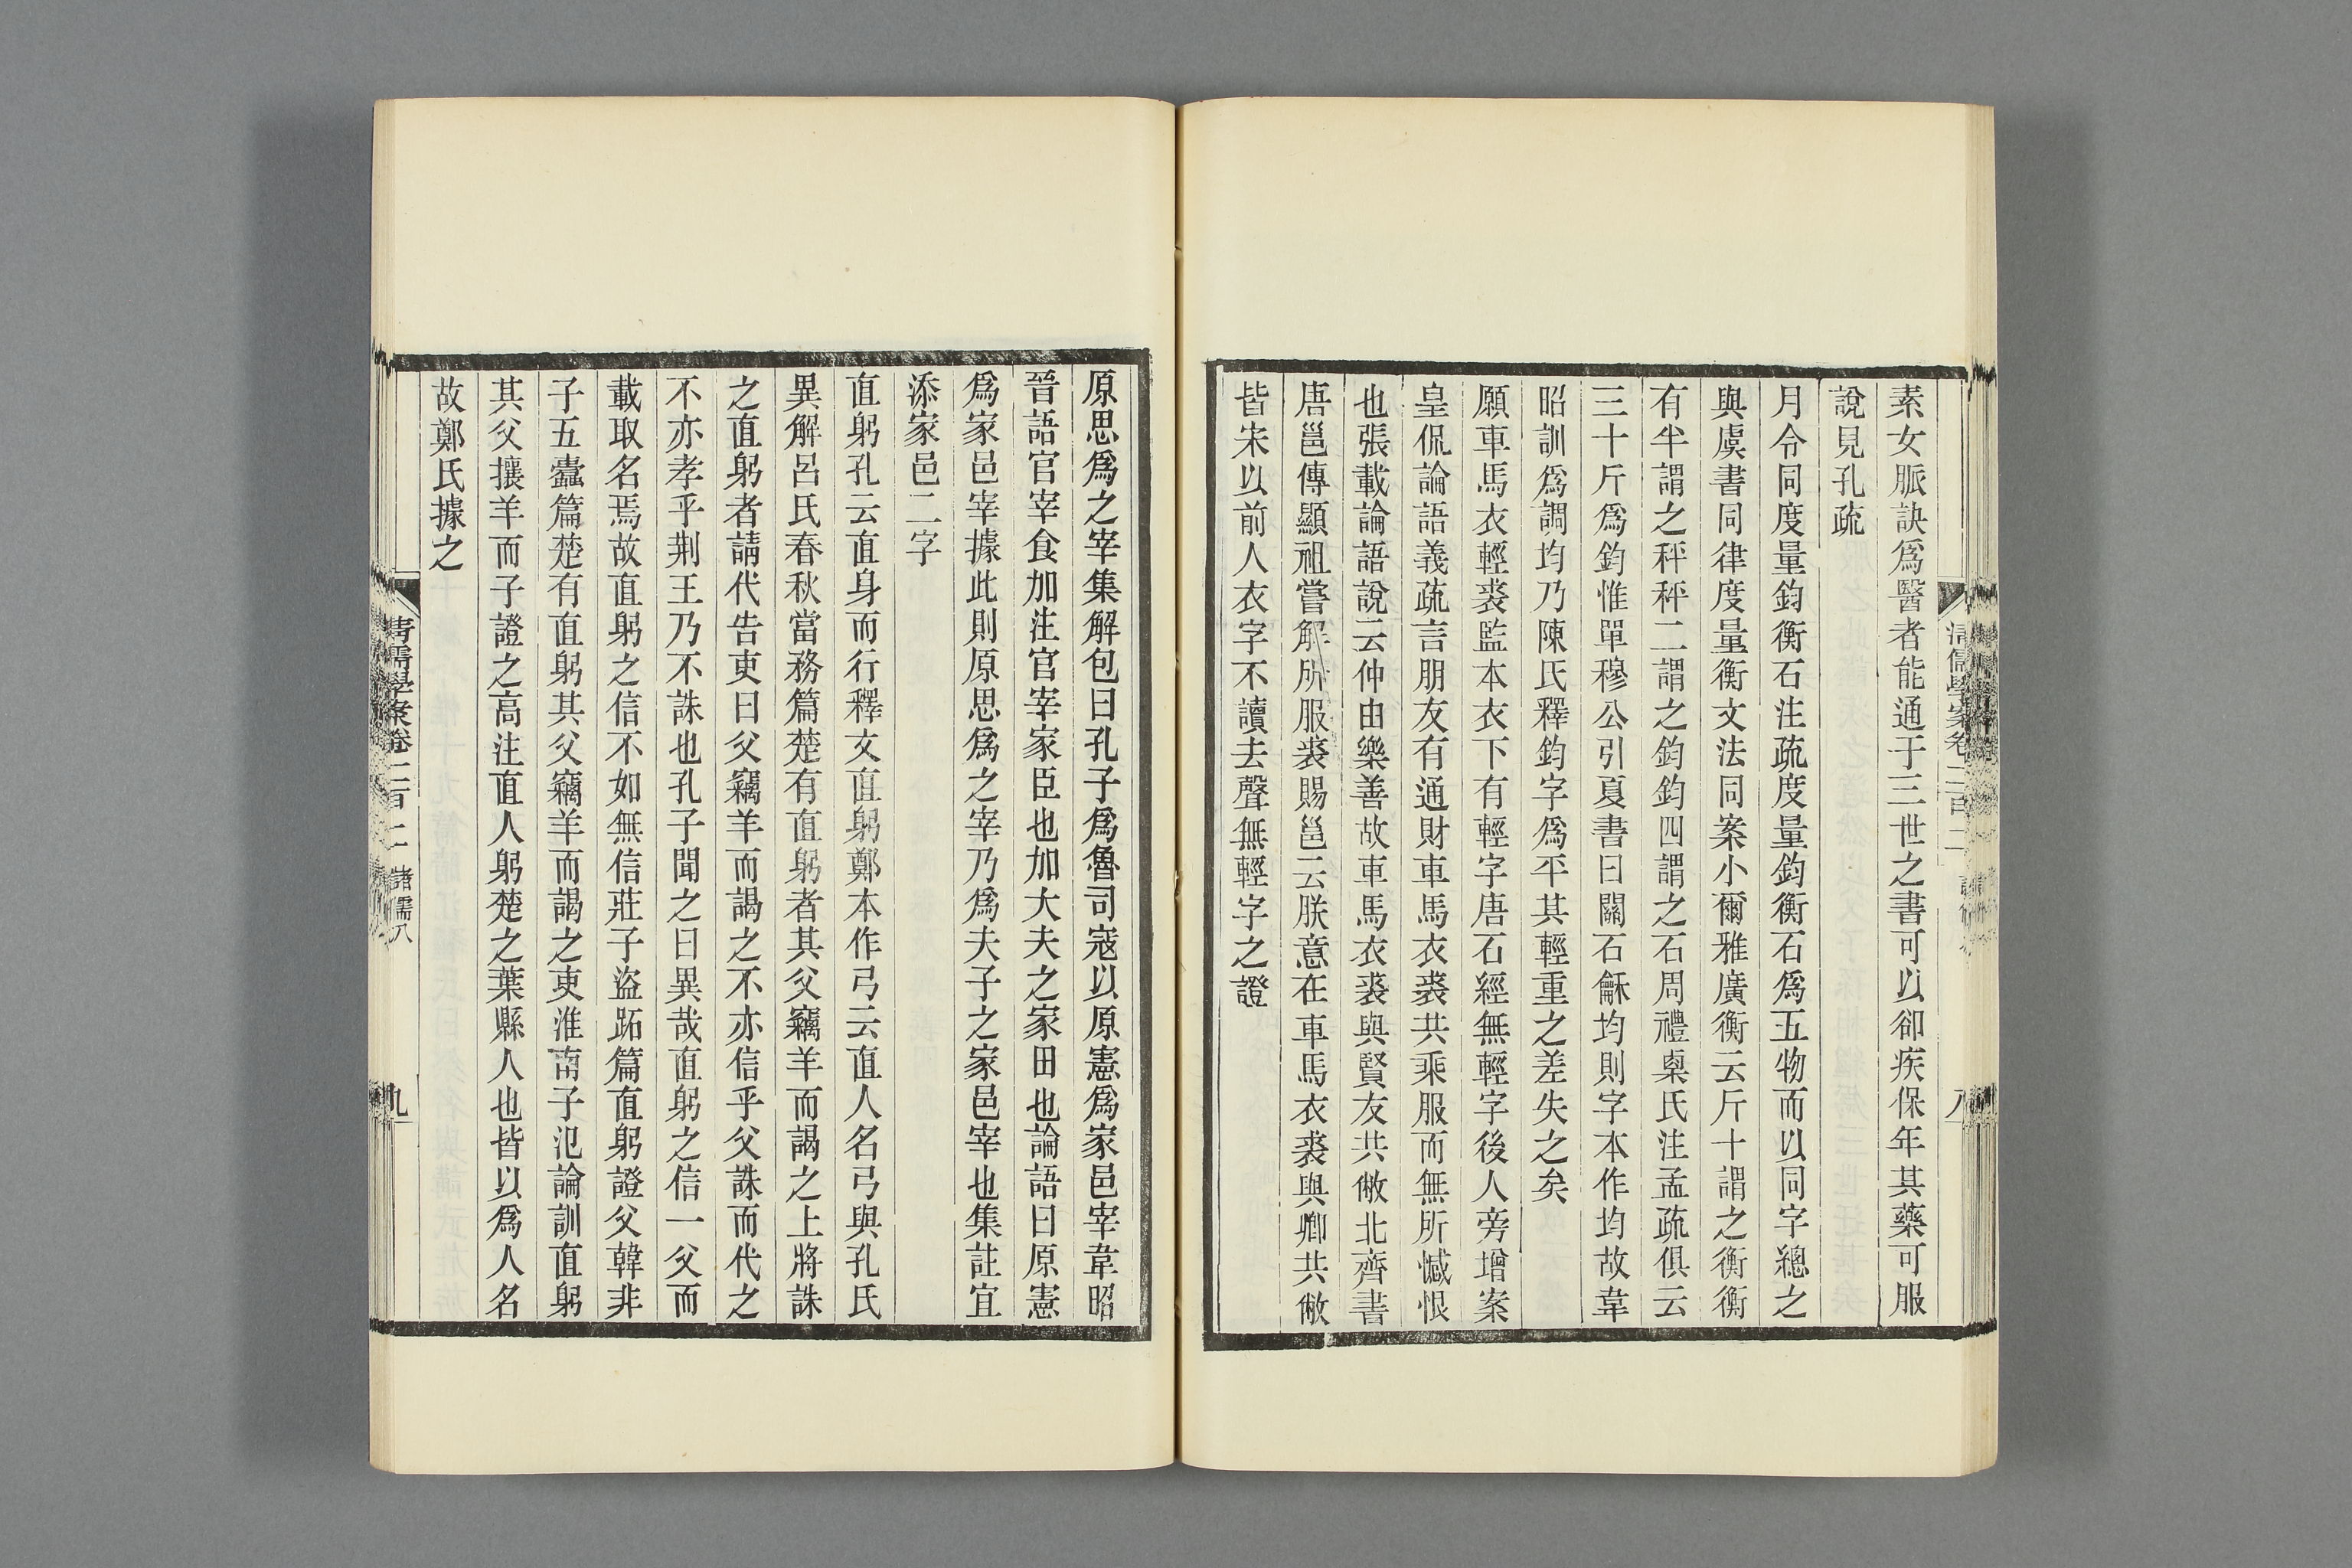 素女脈訣爲醫者能通于三世之書可以卻疾保年其藥可服
說見孔疏
月令同度量鈞衡石注疏度量鈞衡石爲五物而以同字總之
與虞書同律度量衡文法同案小爾雅廣衡云斤十謂之衡衡
有半謂之秤秤二謂之鈞鈞四謂之石周禮㮚氏注孟疏俱云
三十斤爲鈞惟單穆公引夏書曰關石龢均則字本作均故韋
昭訓爲調均乃陳氏釋鈞字爲平其輕重之差失之矣
願車馬衣輕裘監本衣下有輕字唐石經無輕字後人旁增案
皇侃論語義疏言朋友有通財車馬衣裘共乘服而無所憾恨
也張載論語說云仲由樂善故車馬衣裘與賢友共敝北齊書
唐邕傳顯祖嘗解所服裘賜邕云朕意在車馬衣裘與卿共敝
皆宋以前人衣字不讀去聲無輕字之證
清儒學案卷二百二
八
原思爲之宰集解包曰孔子爲魯司寇以原憲爲家邑宰韋昭
晉語官宰食加注官宰家臣也加大夫之家田也論語曰原憲
爲家邑宰據此則原思爲之宰乃爲夫子之家邑宰也集註宜
添家邑二字
直躬孔云直身而行釋文直躬鄭本作弓云直人名弓與孔氏
異解呂氏春秋當務篇楚有直躬者其父竊羊而謁之上將誅
之直躬者請代告吏曰父竊羊而謁之不亦信乎父誅而代之
不亦孝乎荆王乃不誅也孔子聞之曰異哉直躬之信一父而
載取名焉故直躬之信不如無信莊子盜跖篇直躬證父韓非
子五蠹篇楚有直躬其父竊羊而謁之吏淮南子氾論訓直躬
其父攘羊而子證之高注直人躬楚之葉縣人也皆以爲人名
故鄭氏據之
清儒學案卷二百二 諸儒八
九